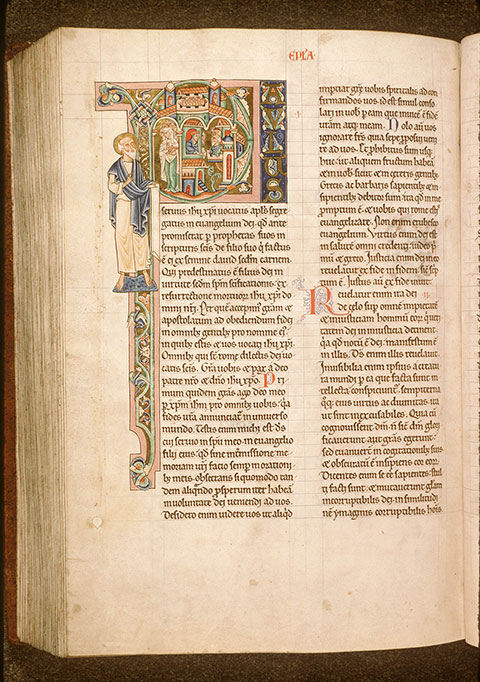 EPLA
PAVLVS
servus ihu xpi vocatus apls segre
gatus in euangelium dei. qd ante
promiserat p prophetas suos in
scripturis scis de filio suo q factus
ē ei ex semine dauid scdm carnem.
Qui predestinatus ē filius dei in
uirtute scdm spm scificationis. ex
resurrectione mortuor ihu xpi do
mini nri. Per quē accepim grām &
apostolatum ad obediendum fidei
in omnib gentib pro nomine ei
in quib estis & uos uocati ihu xpi.
Omnib qui st rome dilectis dei uo
catis scis. Gra uobis & pax a deo
patre nro & dno ihu xpo. Pri
mum quidem gras ago deo meo
p xpm ihm pro omnib uobis. qa
fides ura annunciat in uniuerso
mundo. Testis enim michi est ds
cui seruio in spu meo in euangelio
filii eius. qd sine intmissione me
moriam uri facio semp in orationi
b meis. obsecrans si quomodo tan
dem aliqndo psperum iter habeā
in uoluntate dei ueniendi ad uos.
Desidero enim uidere uos ut aliqd
impciar gre uobis spiritalis ad con
firmandos uos. id est simul conso
lari in uob p eam que inuicē ē fidē
uram atq; meam. Nolo aū uos
ignorare frs quia sepe pposui ueni
re ad uos. & phibitus sum usq;
huc. ut aliquem fructum habeā
& in uob sicut & in ceteris gentib
Grecis ac barbaris sapientib & in
sipientib debitor sum ita qd in me
promptum ē & uobis qui rome estis
euangelizare. Non enim erubesco
euangelium. Virtus enim dei est
in salutē omni credenti. iudeo pri
mū & greco. Justicia enim dei in eo
reuelatur ex fide in fidem. sic sc
ptum ē. Justus aū ex fide uiuit
Reuelatur enim ira dei
de celo sup omnem impietatē
& iniusticiam hominū eor qui ueri
tatem dei in iusticia detinent.
qa qd notū ē dei. manifestum ē
in illis. Ds enim illis reuelauit.
Inuisibilia enim ipsius a creatu
ra mundi p ea que facta sunt in
tellecta conspiciunt. sempiterna
q;q; eius uirtus ac diuinitas. ita
ut sint inexcusabiles. Quia cū
cognouissent dm. n sic dm glori
ficauerunt aut gras egerunt. sed
euanuerunt in cogitationib suis
& obscuratū ē insipiens cor eor.
Dicentes enim se eē sapientes. stul
ti facti sunt. & mutauerunt glam
incorruptibilis dei in similitudi
nē ymaginis corruptibilis hois.